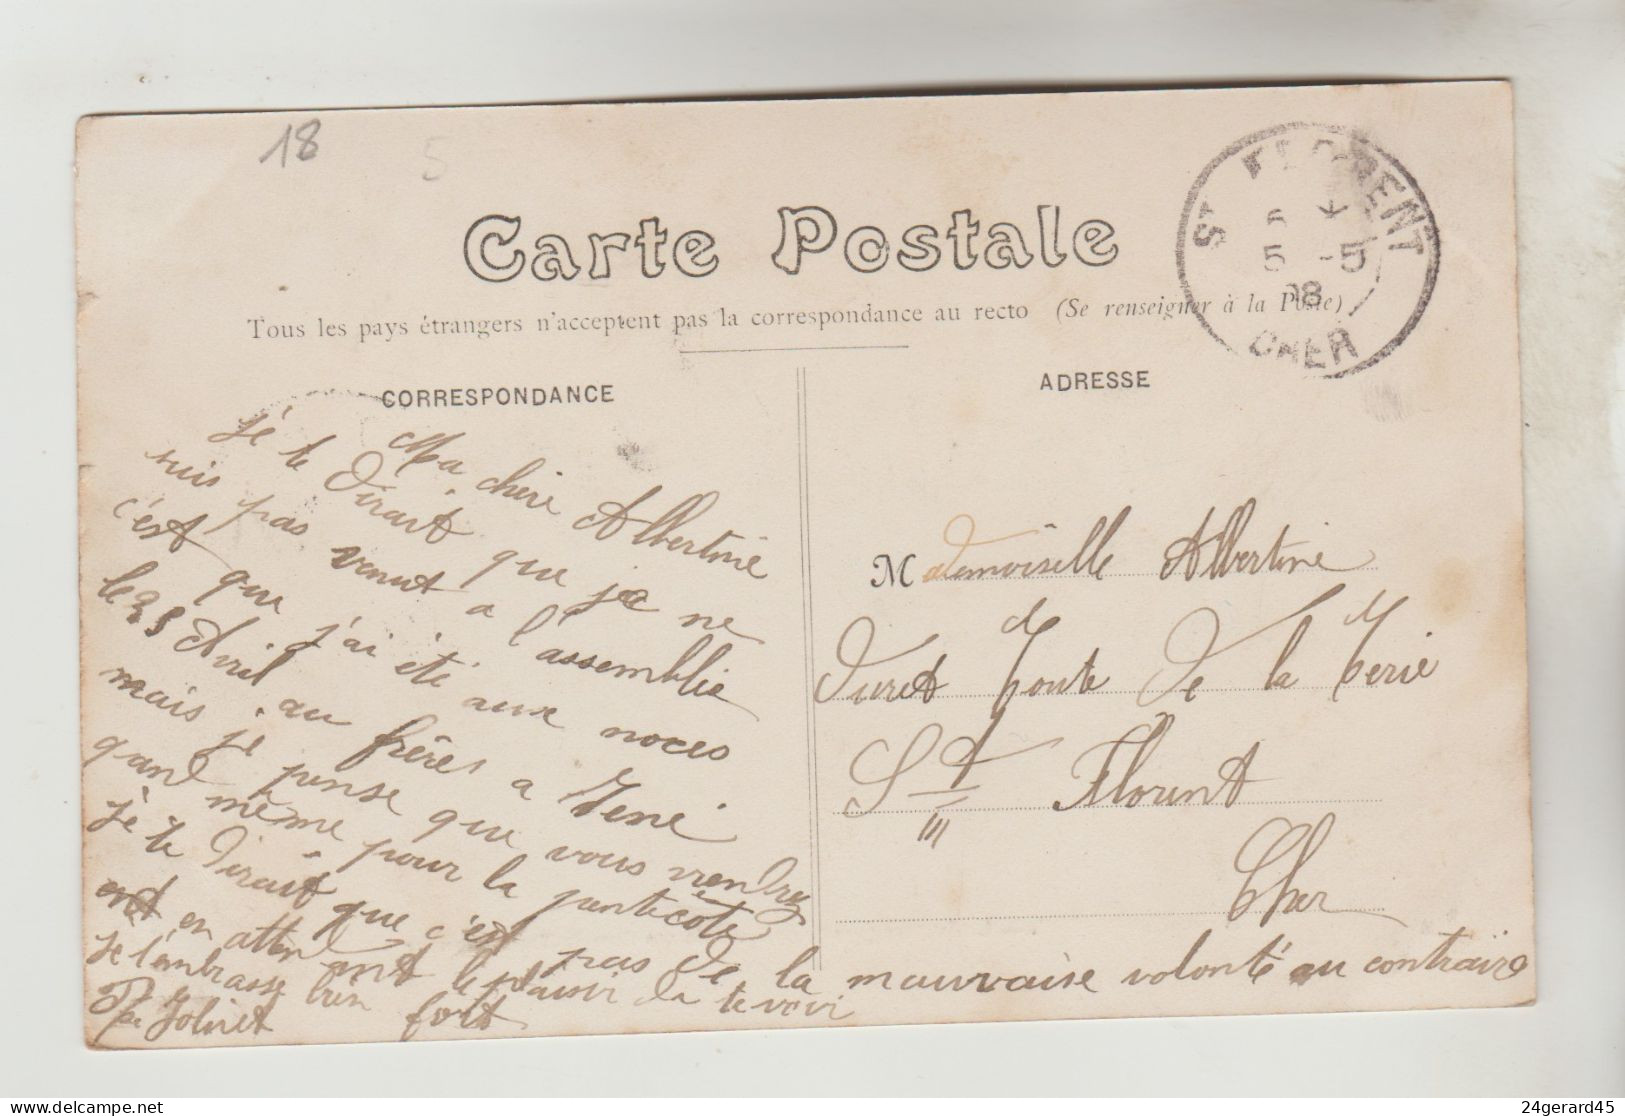 18
5
Carte Postale
Tous les pays étrangers n'acceptent pas la correspondance au recto (Se renseigner à la Poste)
ST FLORENT
6 *
5 -5
08
CHER
CORRESPONDANCE
Ma chère Albertine
je te dirait que je ne
suis pas venut a l'assemblie
c'est que j'ai été aux noces
le 25 Avril au frères a
mais je pense que vous viendrez
quand même pour la pentecôte
je te dirait que c'est pas de la mauvaise volonté au contraire
en attendant le plaisir da te voir
je t'embrasse bien fort
Jolivet
ADRESSE
Mademoiselle Albertine
Duret Route de la
St Florent
Cher
24gerard45